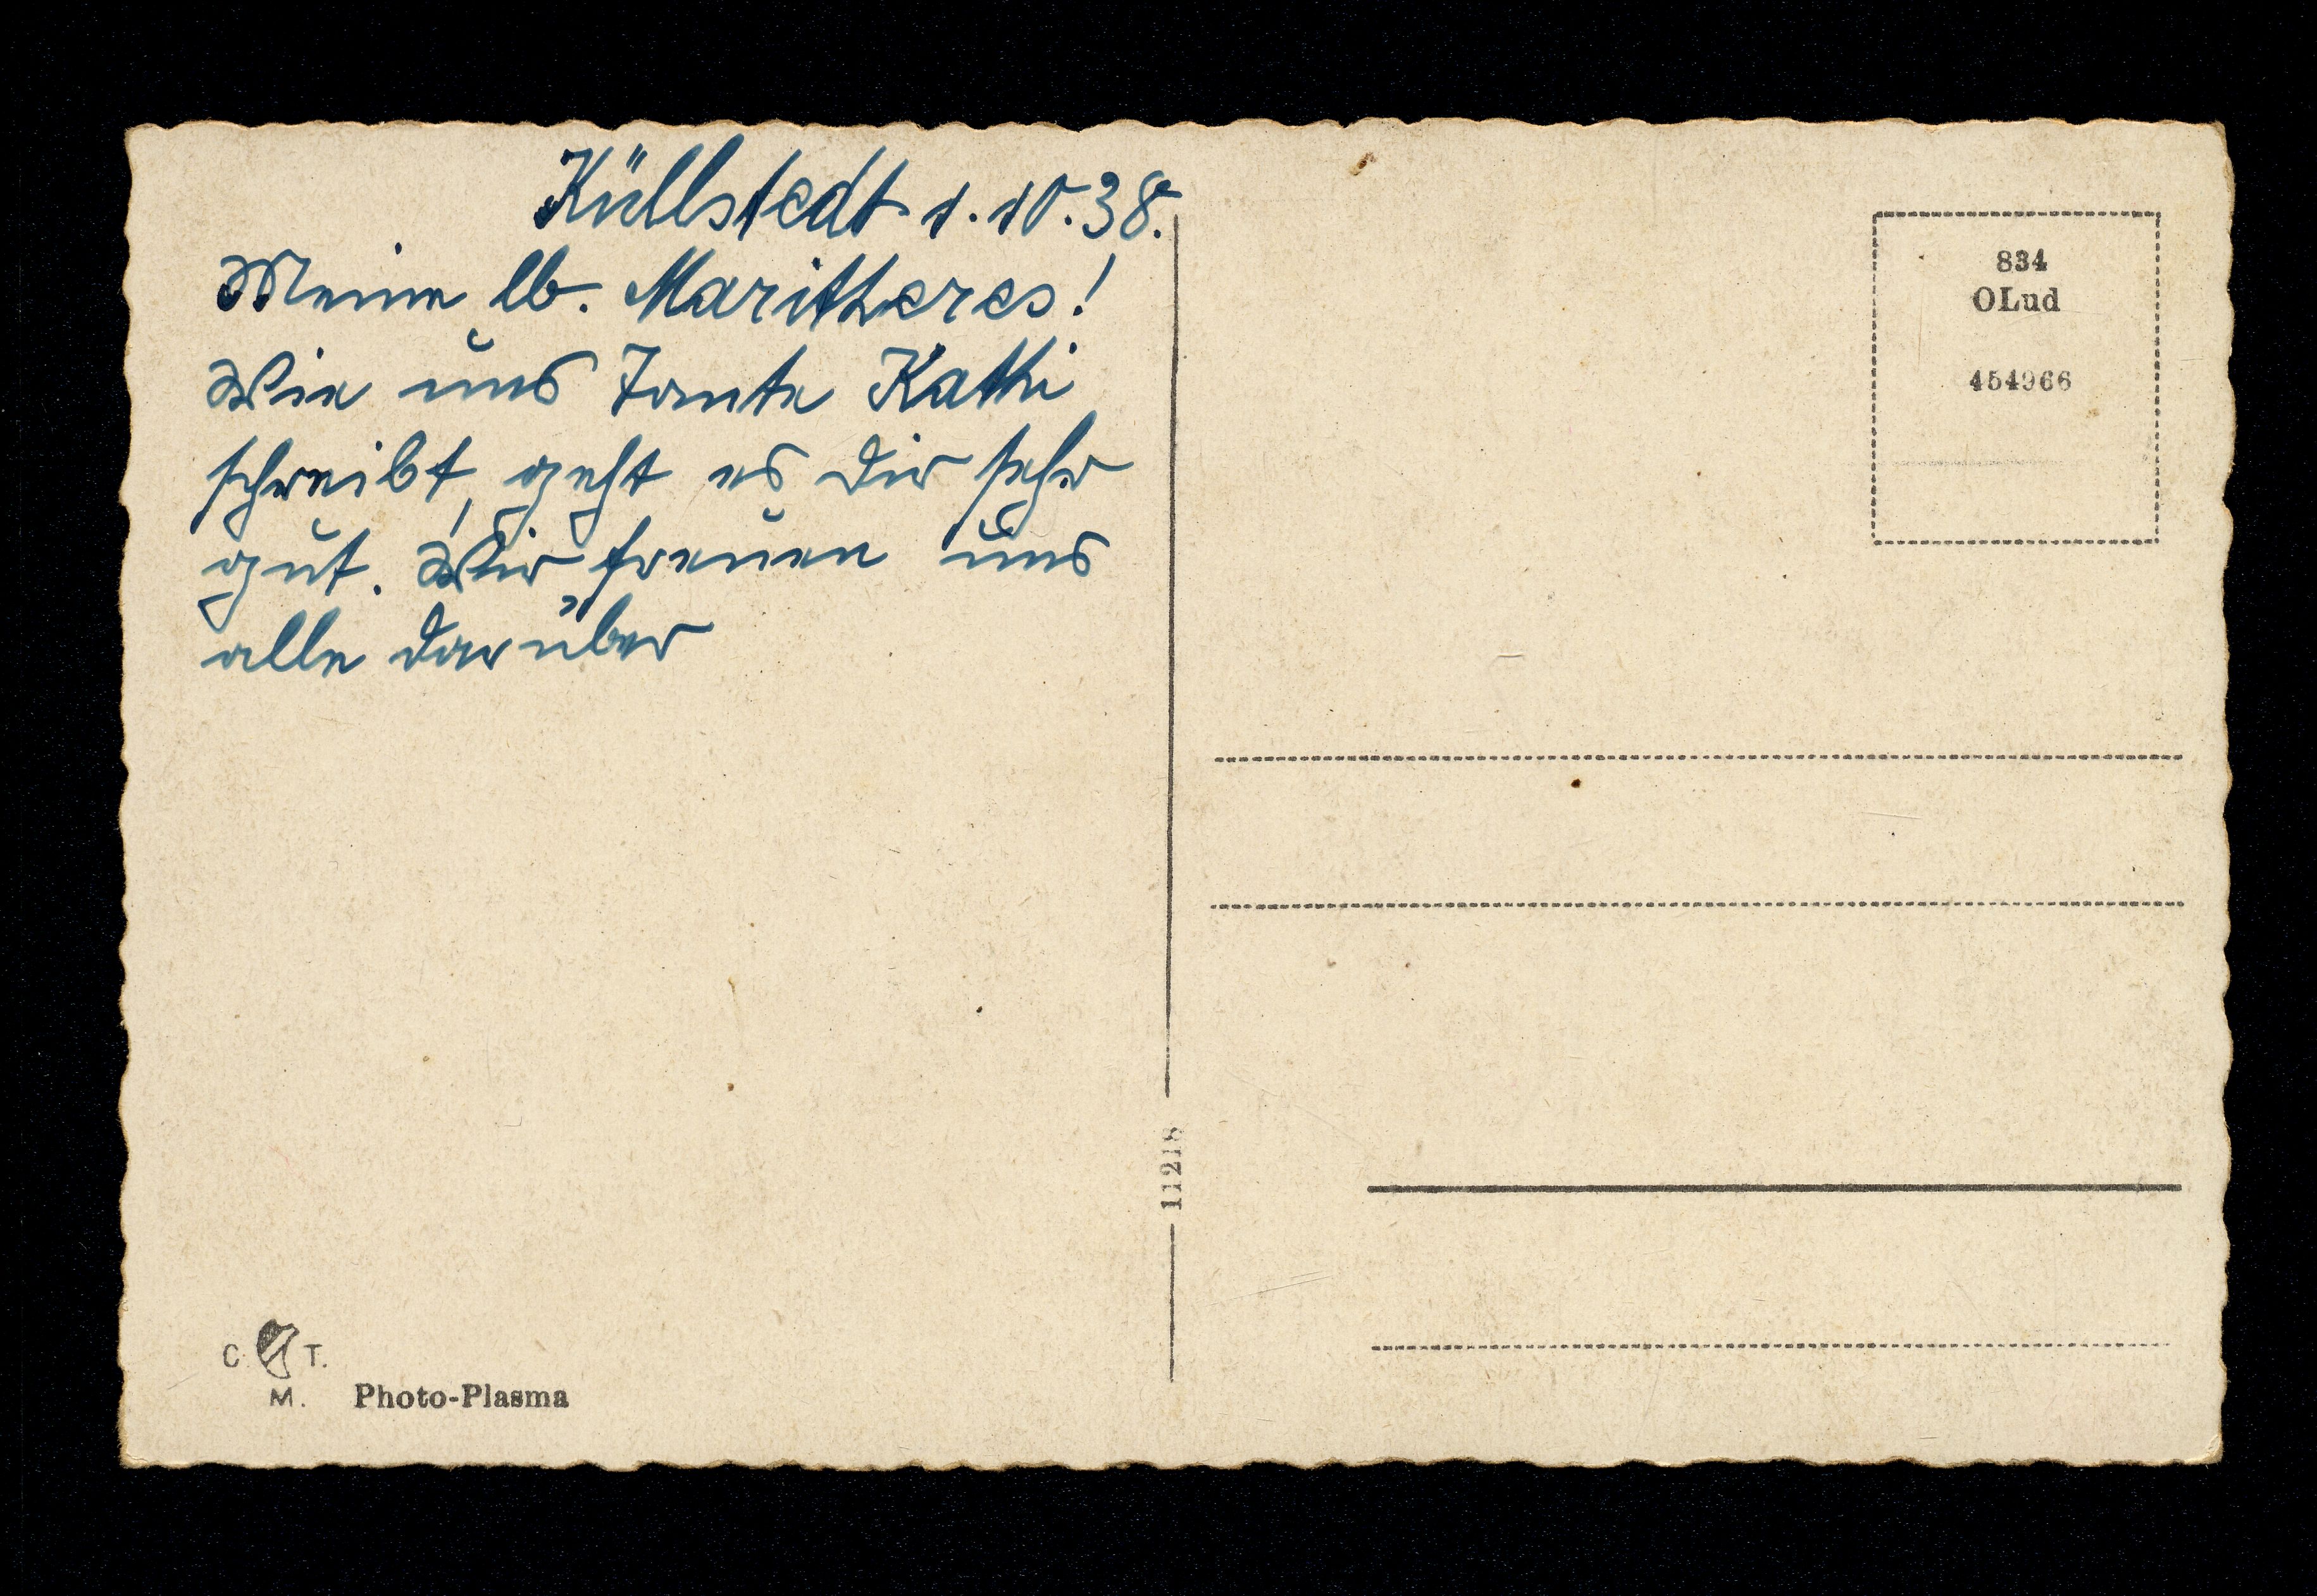 Küllstedt 1.10.38.
Meine lb. Maritheres!
Wie uns Tante Kathi
schreibt, geht es Dir sehr
gut. Wir freuen uns
alle darüber
834
OLud
454966
11218
C. T.
M. Photo-Plasma